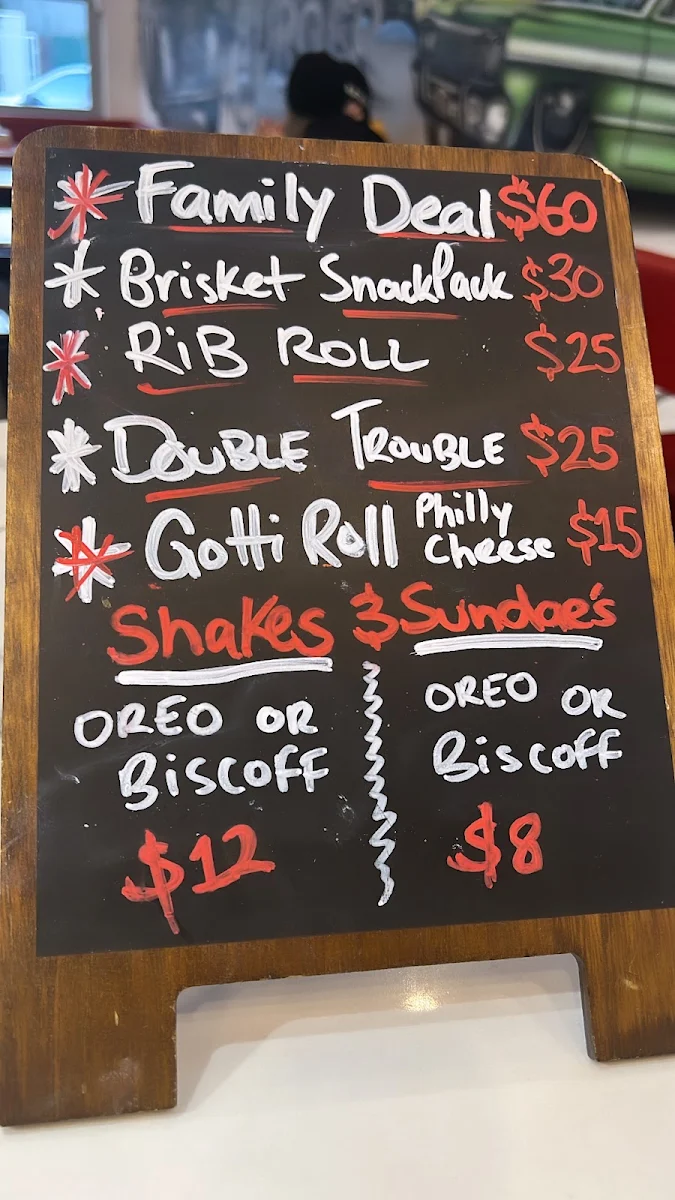 * Family Deal $60
* Brisket SnackPack $30
* RiB ROLL $25
* DOUBLE TROUBLE $25
* Gotti Roll Philly Cheese $15
Shakes & Sundae's
OREO OR
BiSCOFF
$12
OREO OR
BiSCOFF
$8